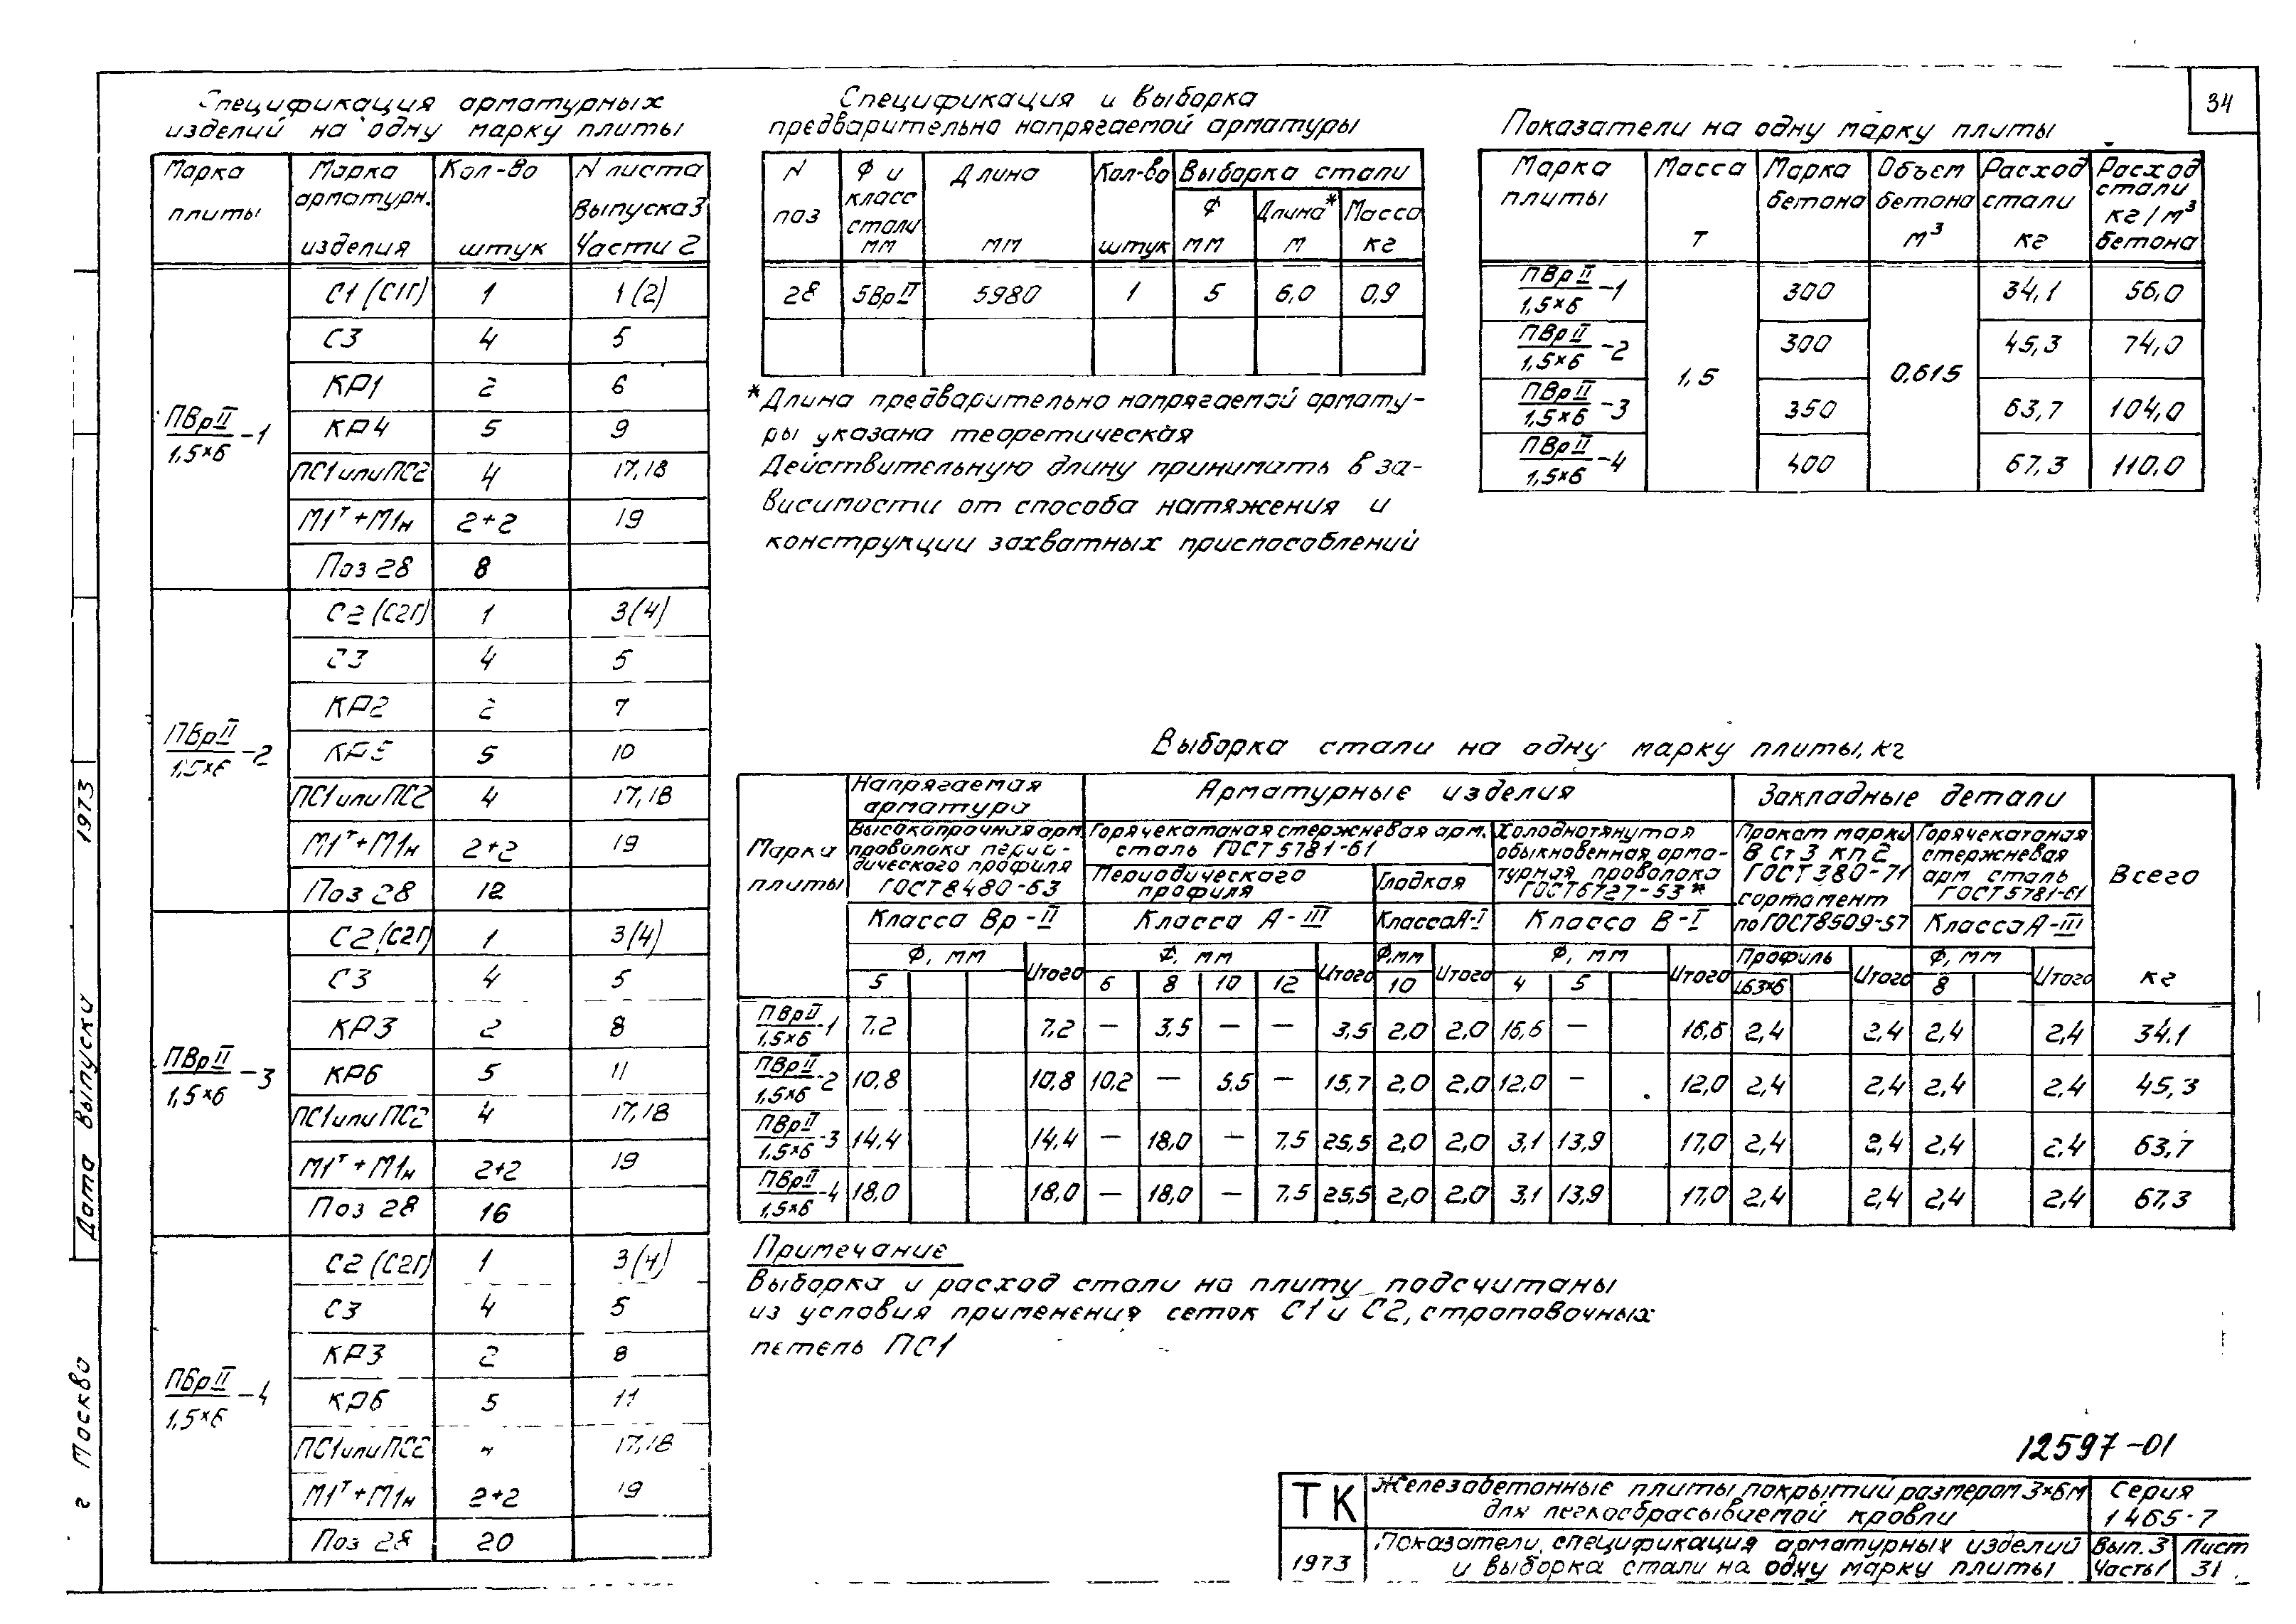 34
Спецификация арматурных
изделий на одну марку плиты
Марка плиты | Марка арматурн. изделия | Кол-во штук | N листа Выпуска 3 Части 2
ПВрII/1,5×6 -1
С1 (С1Г) 1 1 (2)
С3 4 5
КР1 2 6
КР4 5 9
ПС1 или ПС2 4 17,18
М1т + М1н 2+2 19
Поз 28 8
ПВрII/1,5×6 -2
С2 (С2Г) 1 3(4)
С3 4 5
КР2 2 7
КР5 5 10
ПС1 или ПС2 4 17,18
М1т + М1н 2+2 19
Поз 28 12
ПВрII/1,5×6 -3
С2 (С2Г) 1 3(4)
С3 4 5
КР3 2 8
КР6 5 11
ПС1 или ПС2 4 17,18
М1т + М1н 2+2 19
Поз 28 16
ПВрII/1,5×6 -4
С2 (С2Г) 1 3(4)
С3 4 5
КР3 2 8
КР6 5 11
ПС1 или ПС2 17,18
М1т + М1н 2+2 19
Поз 28 20
Спецификация и выборка
предварительно напрягаемой арматуры
N поз | Ф и класс стали мм | Длина мм | Кол-во штук | Выборка стали
Ф мм | Длина* м | Масса кг
28 5ВрII 5980 1 5 6,0 0,9
*Длина предварительно напрягаемой армату-
ры указана теоретическая
Действительную длину принимать в за-
висимости от способа натяжения и
конструкции захватных приспособлений
Показатели на одну марку плиты
Марка плиты | Масса т | Марка бетона | Объем бетона м³ | Расход стали кг | Расход стали кг/м³ бетона
ПВрII/1,5×6 -1 300 34,1 56,0
ПВрII/1,5×6 -2 300 45,3 74,0
1,5 0,615
ПВрII/1,5×6 -3 350 63,7 104,0
ПВрII/1,5×6 -4 400 67,3 110,0
Выборка стали на одну марку плиты, кг
Марка плиты | Напрягаемая арматура | Арматурные изделия | Закладные детали | Всего кг
Высокопрочная арм. проволока периодического профиля ГОСТ 8480-63 | Горячекатаная стержневая арм. сталь ГОСТ 5781-61 | Холоднотянутая обыкновенная арма-турная проволока ГОСТ 6727-53* | Прокат марки В Ст 3 кп 2 ГОСТ 380-71 сортамент по ГОСТ 8509-57 | Горячекатаная стержневая арм сталь ГОСТ 5781-61
Периодического профиля | Гладкая
Класса Вр-II | Класса А-III | Класса А-I | Класса В-I | Класса А-III
Ф, мм | Итого | Ф, мм | Итого | Ф, мм | Итого | Ф, мм | Итого | Профиль | Итого | Ф, мм | Итого
5 | 6 | 8 | 10 | 12 | 10 | 4 | 5 | L63×6 | 8
ПВрII/1,5×6 -1 7,2 7,2 — 3,5 — — 3,5 2,0 2,0 16,6 — 16,6 2,4 2,4 2,4 2,4 34,1
ПВрII/1,5×6 -2 10,8 10,8 10,2 — 5,5 — 15,7 2,0 2,0 12,0 — 12,0 2,4 2,4 2,4 2,4 45,3
ПВрII/1,5×6 -3 14,4 14,4 — 18,0 — 7,5 25,5 2,0 2,0 3,1 13,9 17,0 2,4 2,4 2,4 2,4 63,7
ПВрII/1,5×6 -4 18,0 18,0 — 18,0 — 7,5 25,5 2,0 2,0 3,1 13,9 17,0 2,4 2,4 2,4 2,4 67,3
Примечание
Выборка и расход стали на плиту подсчитаны
из условия применения сеток С1 и С2, строповочных
петель ПС1
12597-01
ТК
1973
Железобетонные плиты покрытий размером 3×6м
для легкосбрасываемой кровли
Серия
1 465-7
Показатели, спецификация арматурных изделий
и выборка стали на одну марку плиты
Вып. 3
Часть 1
Лист
31
г Москва
Дата выпуски 1973